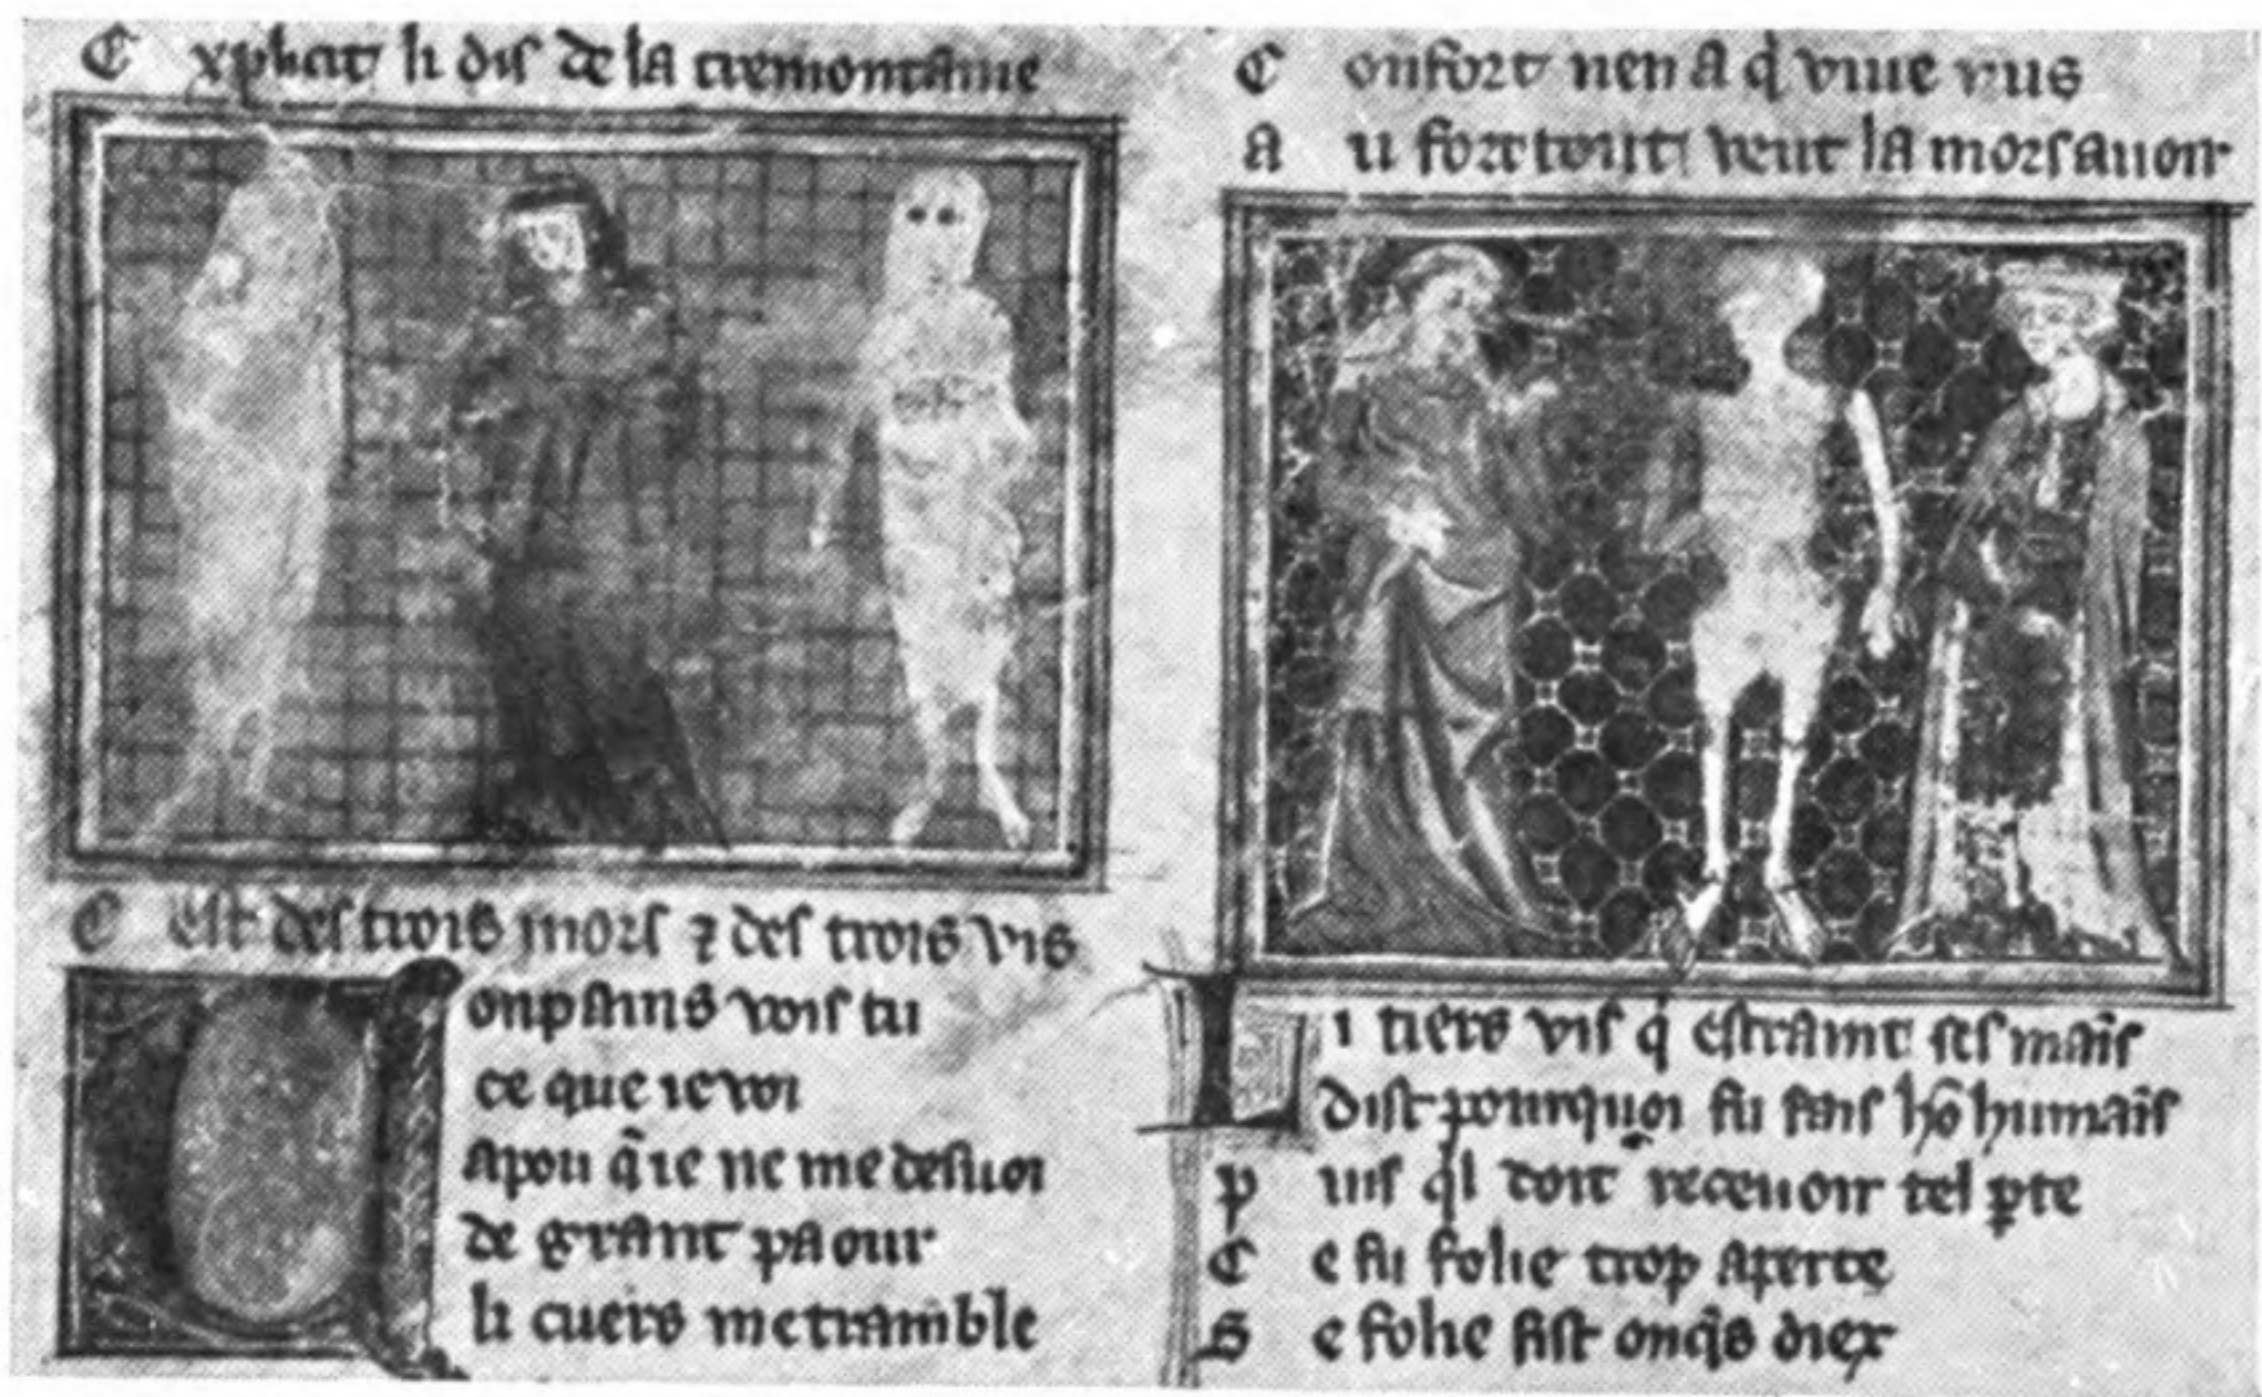 Explicit li dis de la tremontaine
C est des trois mors ⁊ des trois vis
onpains vois tu
ce que ie voi
apou q̃ ie ne me desuoi
de grant paour
li cuers me tramble
C onfort nen a q̇ viue nus
A u fort tout veut la mors auoir
L i tiers vis q̇ estraint ses maĩs
dist pourquoi fu fais hõ humaĩs
P uis q̇l doit receuoir tel ꝑte
C e fu folie trop aperte
S e folie fist onq̃s diex